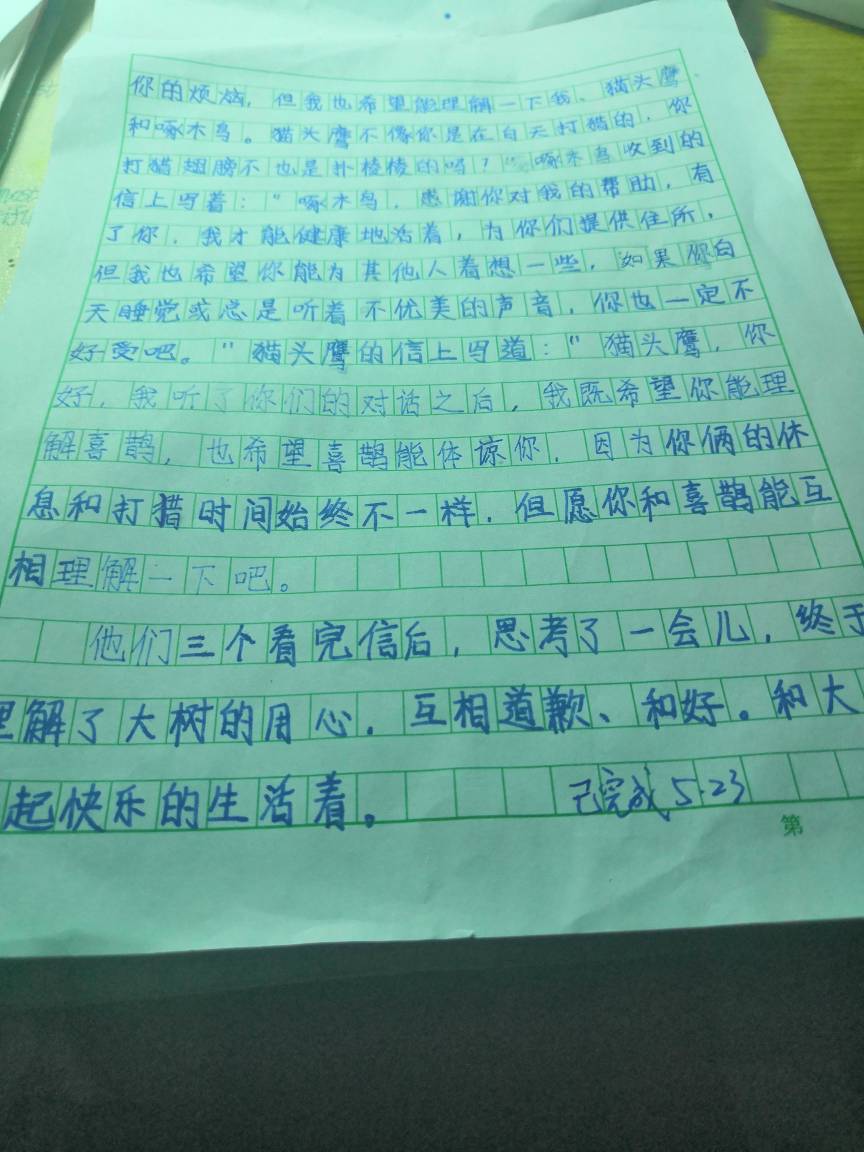 你的烦恼，但我也希望能理解一下我、猫头鹰
和啄木鸟。猫头鹰不像你是在白天打猎的，你
打猎翅膀不也是扑棱棱的吗？"啄木鸟收到的
信上写着："啄木鸟，感谢你对我的帮助，有
了你，我才能健康地活着，为你们提供住所，
但我也希望你能为其他人着想一些，如果你白
天睡觉或总是听着不优美的声音，你也一定不
好受吧。"猫头鹰的信上写道："猫头鹰，你
好，我听了你们的对话之后，我既希望你能理
解喜鹊，也希望喜鹊能体谅你，因为你俩的休
息和打猎时间始终不一样，但愿你和喜鹊能互
相理解一下吧。
他们三个看完信后，思考了一会儿，终于
理解了大树的用心，互相道歉、和好。和大
起快乐的生活着。
已完成 5.23
第